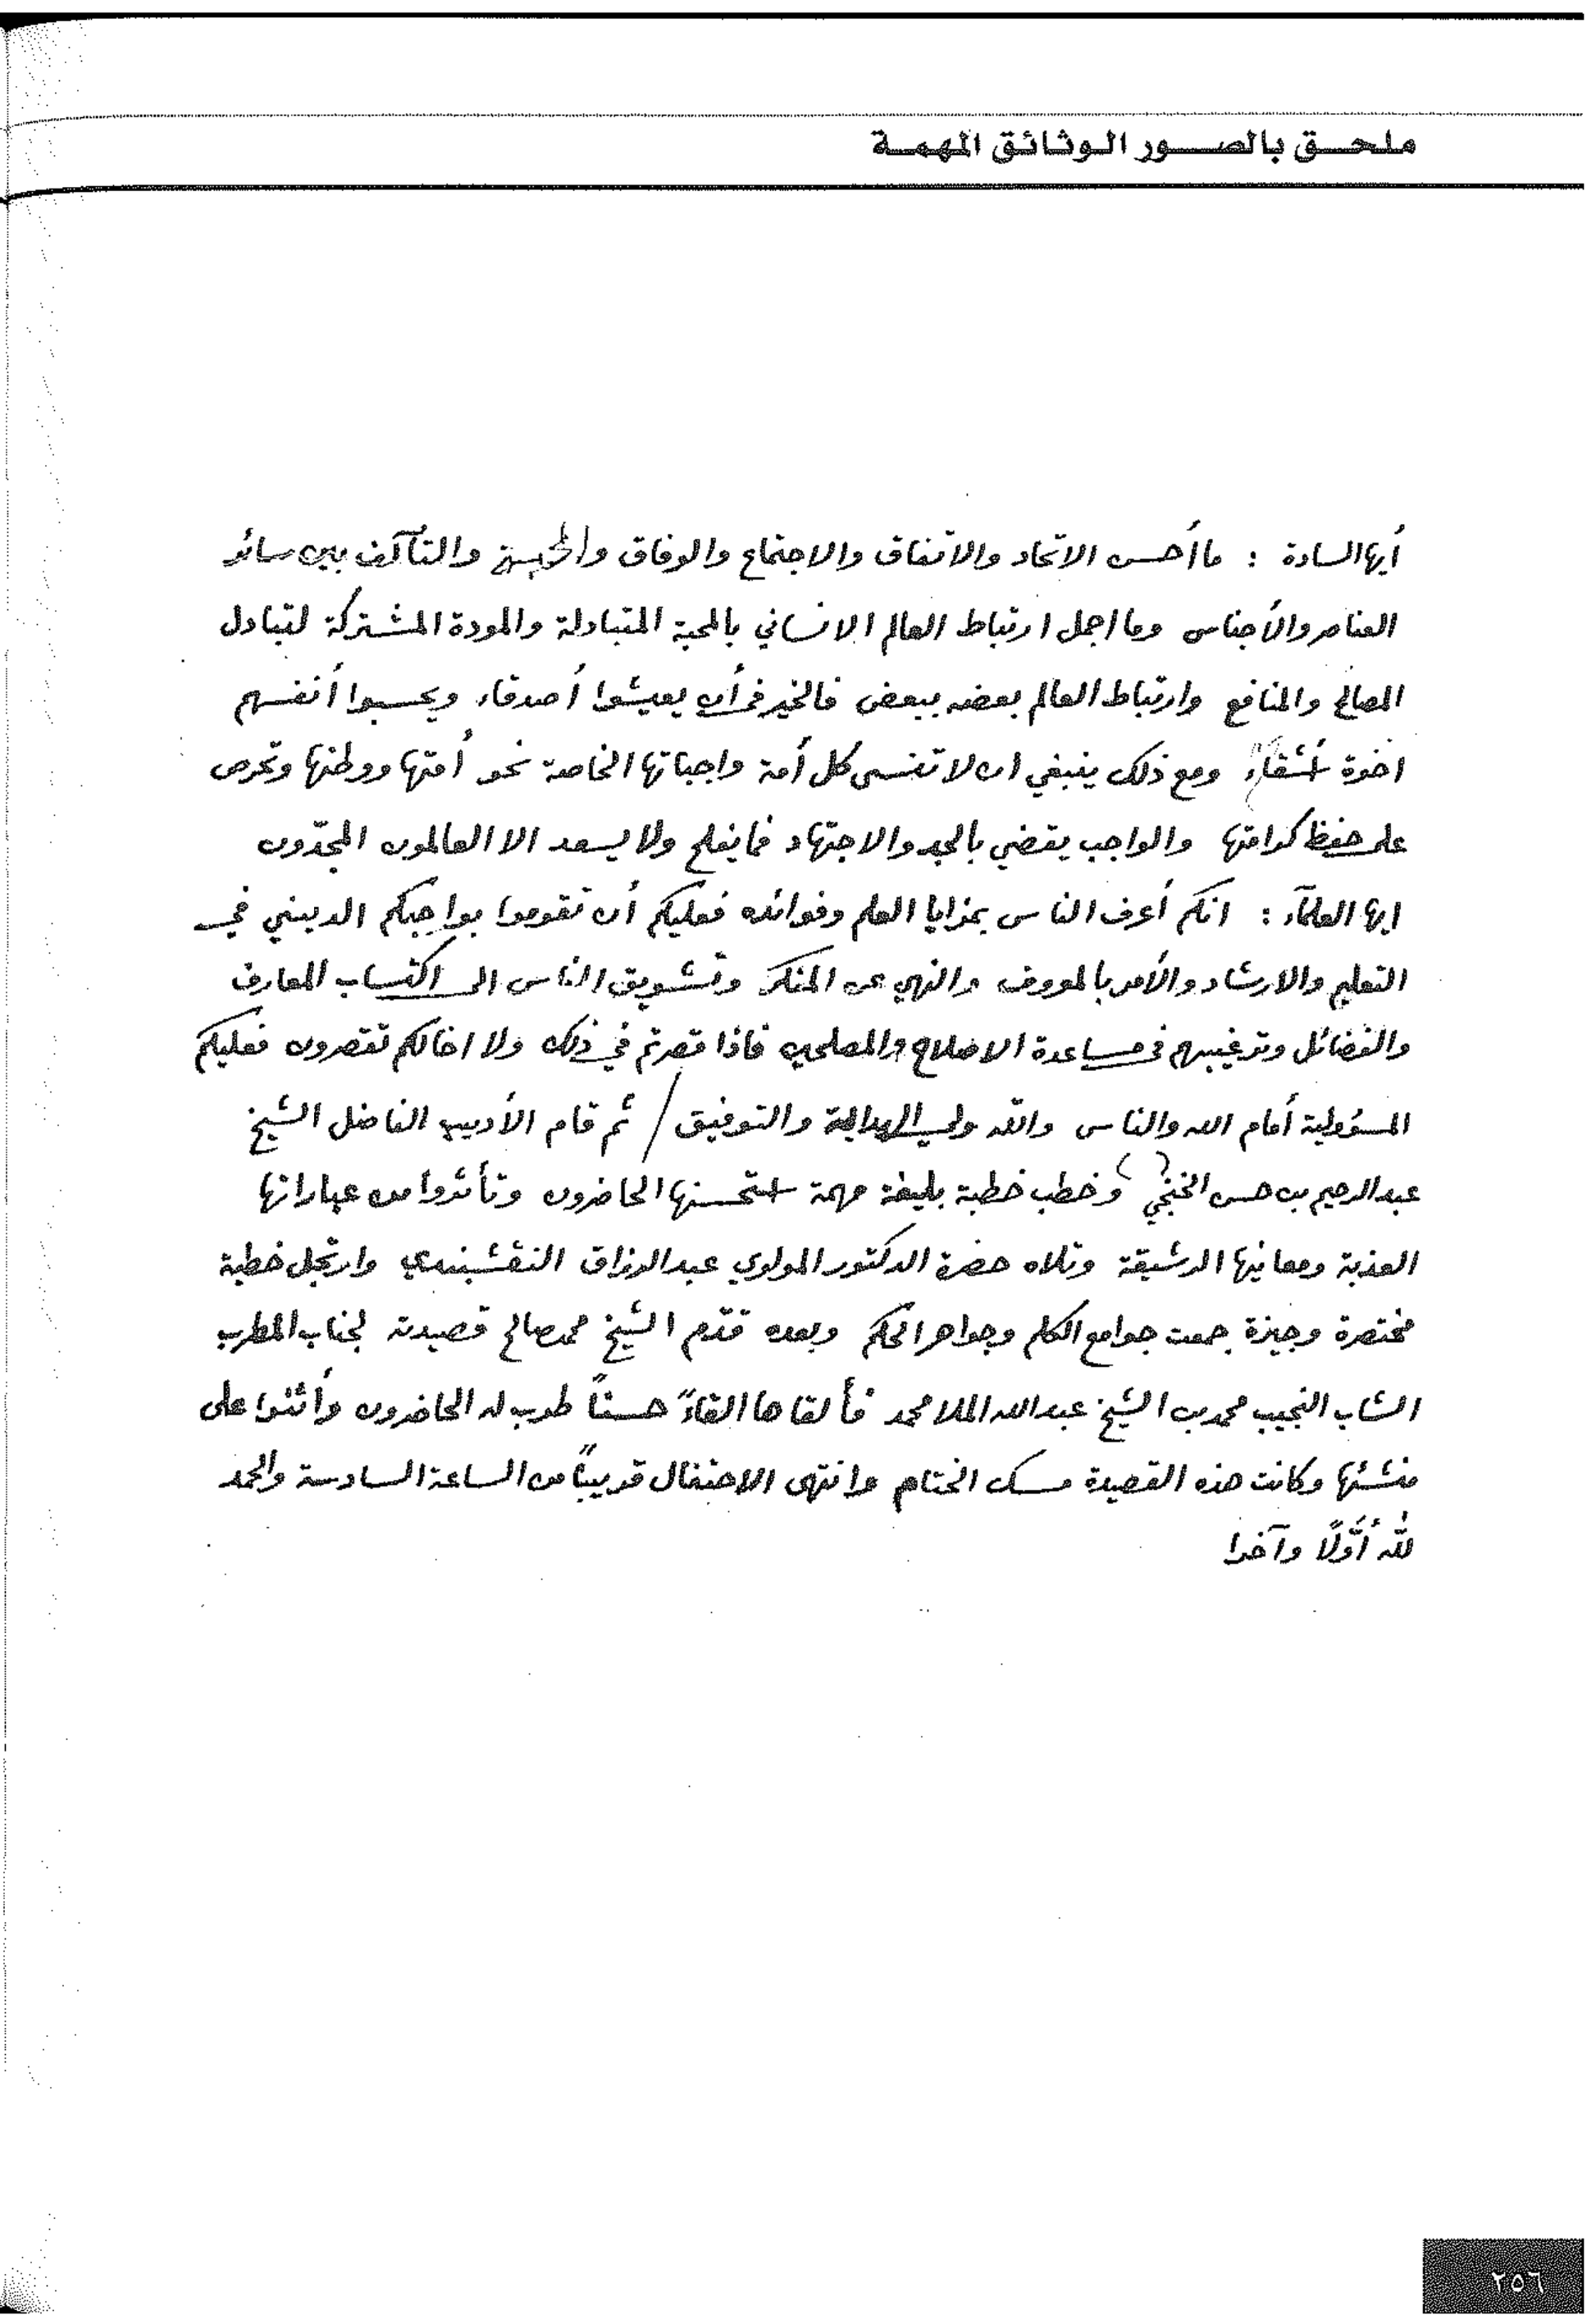 ملحق بالصور الوثائق المهمة
أيها السادة : ما أحسن الاتحاد والاتفاق والاجتماع والوفاق والتآلف بين سائر
العناصر والأجناس وما اجمل ارتباط العالم الانساني بالمحبة المتبادلة والمودة المشتركة لتبادل
المصالح والمنافع وارتباط العالم بعضه ببعض فالخير في أن يعيشوا أصدقاء ويحسبوا أنفسهم
اخوة أشقاء ومع ذلك ينبغي ان لا تنسى كل أمة واجباتها الخاصة نحو أمتها ووطنها وتحرص
على حفظ كرامتها والواجب يقضي بالجد والاجتهاد فما يفلح ولا يسعد الا العالمون المجدّون
ايها العلمآء : انكم أعرف الناس بمزايا العلم وفوائده فعليكم أن تقوموا بواجبكم الديني في
التعليم والارشاد والأمر بالمعروف والنهي عن المنكر وتشويق الناس الى اكتساب المعارف
والفضائل وترغيبهم في مساعدة الاصلاح والمصلحين فاذا قصرتم في ذلك ولا اخالكم تقصرون فعليكم
المسؤولية أمام الله والناس والله ولي الهداية والتوفيق / ثم قام الأديب الفاضل الشيخ
عبدالرحيم بن حسن الخنجي وخطب خطبة بليغة مهمة استحسنها الحاضرون وتأثروا من عباراتها
العذبة ومعانيها الرشيقة وتلاه حضرة الدكتور المولوي عبدالرزاق النقشبندي وارتجل خطبة
مختصرة وجيزة جمعت جوامع الكلم وجواهر الحكم وبعده قدّم الشيخ محمد صالح قصيدته لجناب المطرب
الشاب النجيب محمد بن الشيخ عبدالله الملا محمد فألقاها القاءً حسناً طرب له الحاضرون وأثنوا على
منشئها وكانت هذه القصيدة مسك الختام وانتهى الاحتفال قريباً من الساعة السادسة والحمد
لله أوّلاً وآخرا
٢٥٦